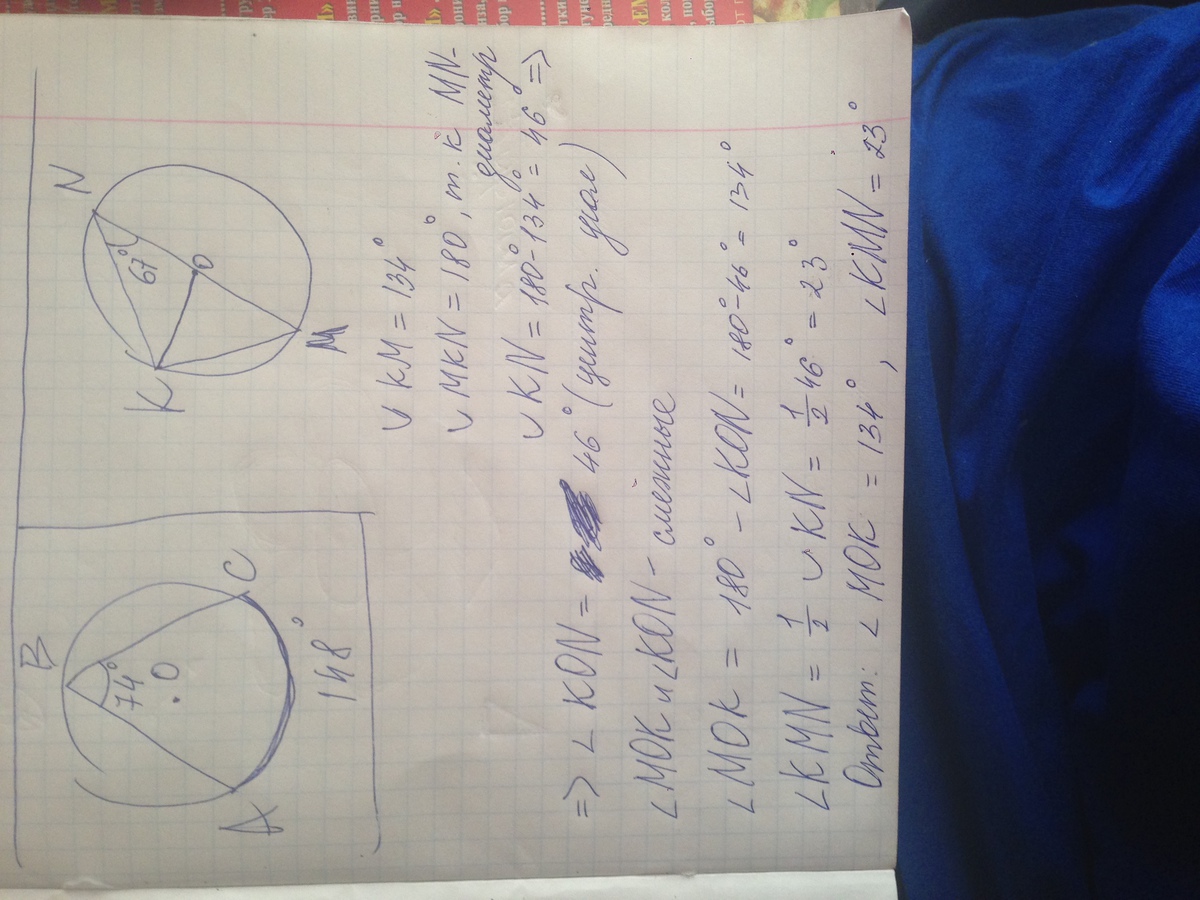 B
74°
.O
A
C
148°
N
67°
O
K
M
◡ KM = 134°
◡ MKN = 180°, т.к MN-
диаметр
◡ KN = 180°-134° = 46° =>
=> ∠ KON = 46° (центр. угол)
∠MOK и ∠KON - смежные
∠MOK = 180° - ∠KON = 180°-46° = 134°
∠KMN = 1/2 ◡ KN = 1/2 46° = 23°
Ответ: ∠ MOK = 134°, ∠KMN = 23°